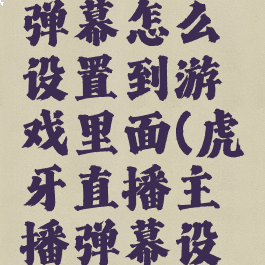 弹幕怎么
设置到游
戏里面(虎
牙直播主
播弹幕设